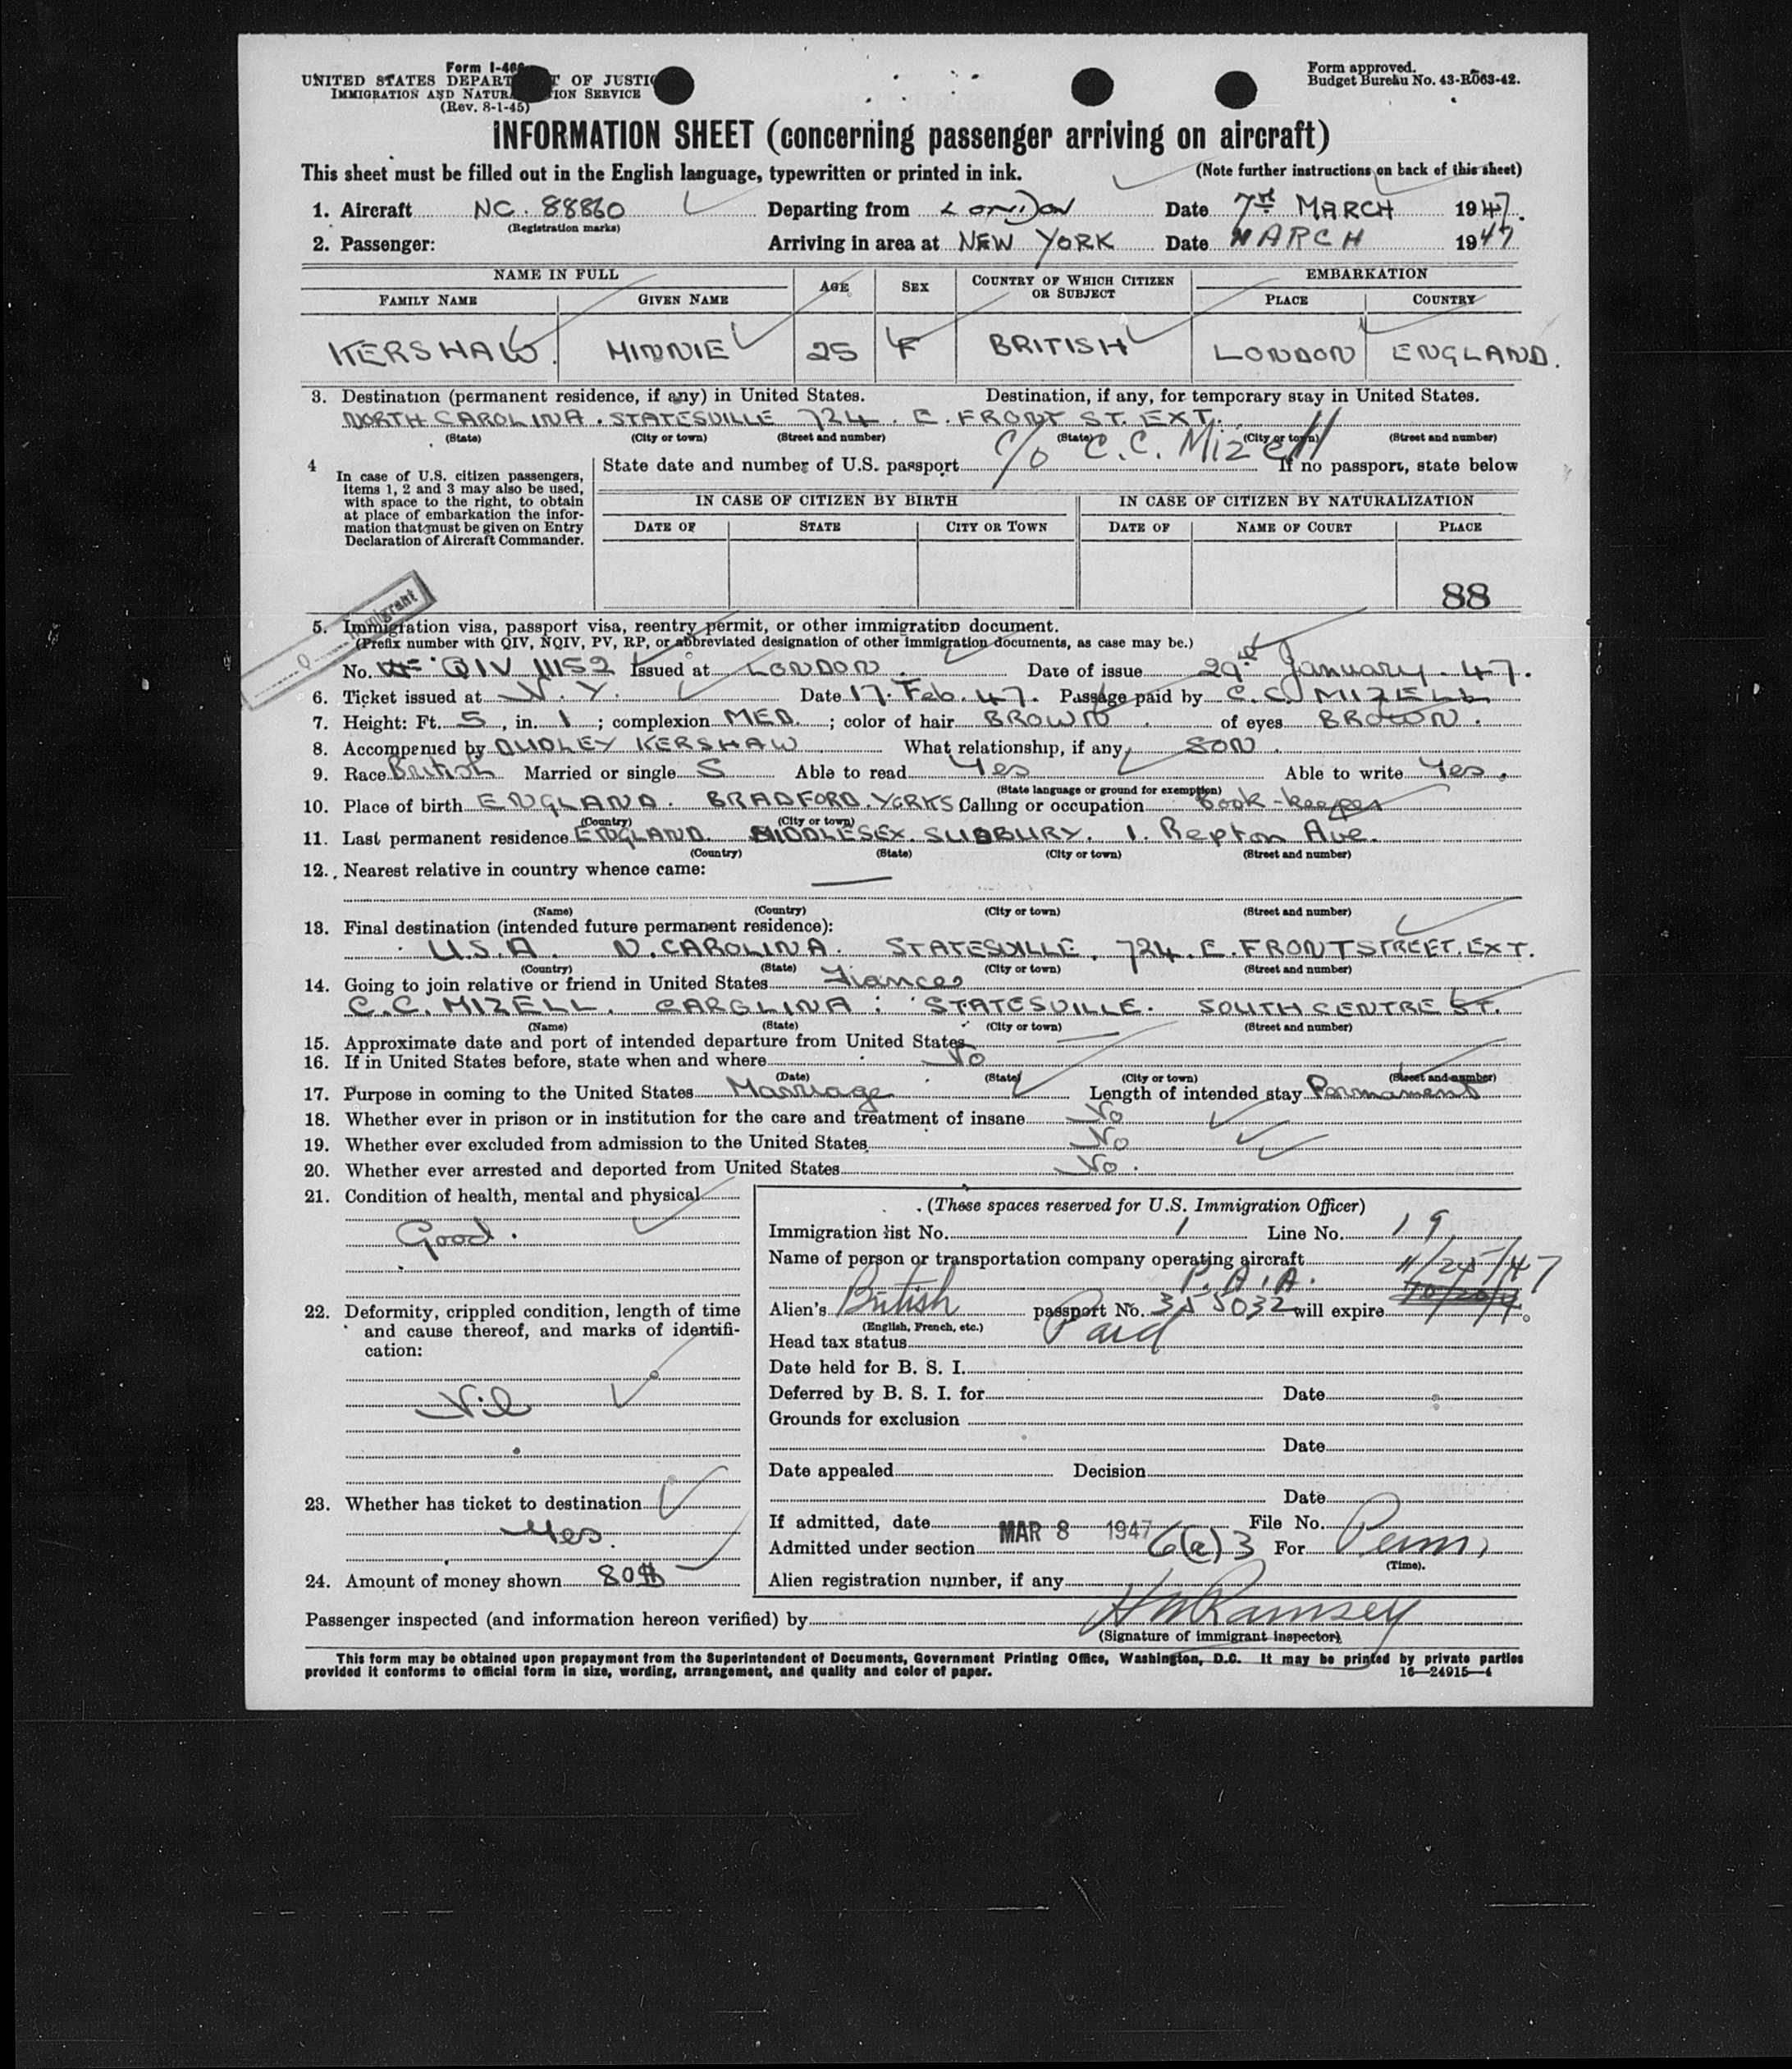 Form I-466
UNITED STATES DEPARTMENT OF JUSTICE
IMMIGRATION AND NATURALIZATION SERVICE
(Rev. 8-1-45)
Form approved.
Budget Bureau No. 43-R063-42.
INFORMATION SHEET (concerning passenger arriving on aircraft)
This sheet must be filled out in the English language, typewritten or printed in ink. (Note further instructions on back of this sheet)
1. Aircraft NC. 88860 Departing from LONDON Date 7th MARCH 1947.
(Registration marks)
2. Passenger: Arriving in area at NEW YORK Date MARCH 1947
NAME IN FULL AGE SEX COUNTRY OF WHICH CITIZEN OR SUBJECT EMBARKATION
FAMILY NAME GIVEN NAME PLACE COUNTRY
KERSHAW. MINNIE 25 F BRITISH LONDON ENGLAND.
3. Destination (permanent residence, if any) in United States. Destination, if any, for temporary stay in United States.
NORTH CAROLINA. STATESVILLE 724. E. FRONT ST. EXT.
(State) (City or town) (Street and number) (State) (City or town) (Street and number)
c/o C.C. Mizell
4 In case of U.S. citizen passengers, items 1, 2 and 3 may also be used, with space to the right, to obtain at place of embarkation the information that must be given on Entry Declaration of Aircraft Commander.
State date and number of U.S. passport If no passport, state below
IN CASE OF CITIZEN BY BIRTH IN CASE OF CITIZEN BY NATURALIZATION
DATE OF STATE CITY OR TOWN DATE OF NAME OF COURT PLACE
88
Immigrant
5. Immigration visa, passport visa, reentry permit, or other immigration document.
(Prefix number with QIV, NQIV, PV, RP, or abbreviated designation of other immigration documents, as case may be.)
No. QIV 11152 Issued at LONDON. Date of issue 29th January. 47.
6. Ticket issued at N.Y. Date 17. Feb. 47. Passage paid by C.C. MIZELL
7. Height: Ft. 5, in. 1; complexion MED.; color of hair BROWN. of eyes BROWN.
8. Accompanied by DUDLEY KERSHAW What relationship, if any, SON.
9. Race British Married or single S Able to read Yes Able to write Yes.
(State language or ground for exemption)
10. Place of birth ENGLAND. BRADFORD. YORKS Calling or occupation Book-keeper
(Country) (City or town)
11. Last permanent residence ENGLAND. MIDDLESEX. SUDBURY. 1. Repton Ave.
(Country) (State) (City or town) (Street and number)
12. Nearest relative in country whence came: —
(Name) (Country) (City or town) (Street and number)
13. Final destination (intended future permanent residence):
U.S.A. N. CAROLINA. STATESVILLE. 724. E. FRONT STREET. EXT.
(Country) (State) (City or town) (Street and number)
14. Going to join relative or friend in United States Fiance
C.C. MIZELL. CAROLINA: STATESVILLE. SOUTH CENTRE ST.
(Name) (State) (City or town) (Street and number)
15. Approximate date and port of intended departure from United States —
16. If in United States before, state when and where No
(Date) (State) (City or town) (Street and number)
17. Purpose in coming to the United States Marriage Length of intended stay Permanent
18. Whether ever in prison or in institution for the care and treatment of insane No
19. Whether ever excluded from admission to the United States No
20. Whether ever arrested and deported from United States No.
21. Condition of health, mental and physical
Good.
22. Deformity, crippled condition, length of time and cause thereof, and marks of identification:
Nil
23. Whether has ticket to destination
Yes.
24. Amount of money shown 80$
(These spaces reserved for U.S. Immigration Officer)
Immigration list No. 1 Line No. 19
Name of person or transportation company operating aircraft
P.A.A.
11/25/47
Alien's British passport No. 355032 will expire
(English, French, etc.)
Head tax status Paid
Date held for B. S. I.
Deferred by B. S. I. for Date
Grounds for exclusion
Date
Date appealed Decision
Date
If admitted, date MAR 8 1947 File No.
Admitted under section 6(e)3 For Perm.
(Time).
Alien registration number, if any
Passenger inspected (and information hereon verified) by H M Ramsey
(Signature of immigrant inspector)
This form may be obtained upon prepayment from the Superintendent of Documents, Government Printing Office, Washington, D.C. It may be printed by private parties
provided it conforms to official form in size, wording, arrangement, and quality and color of paper. 16—24915-4